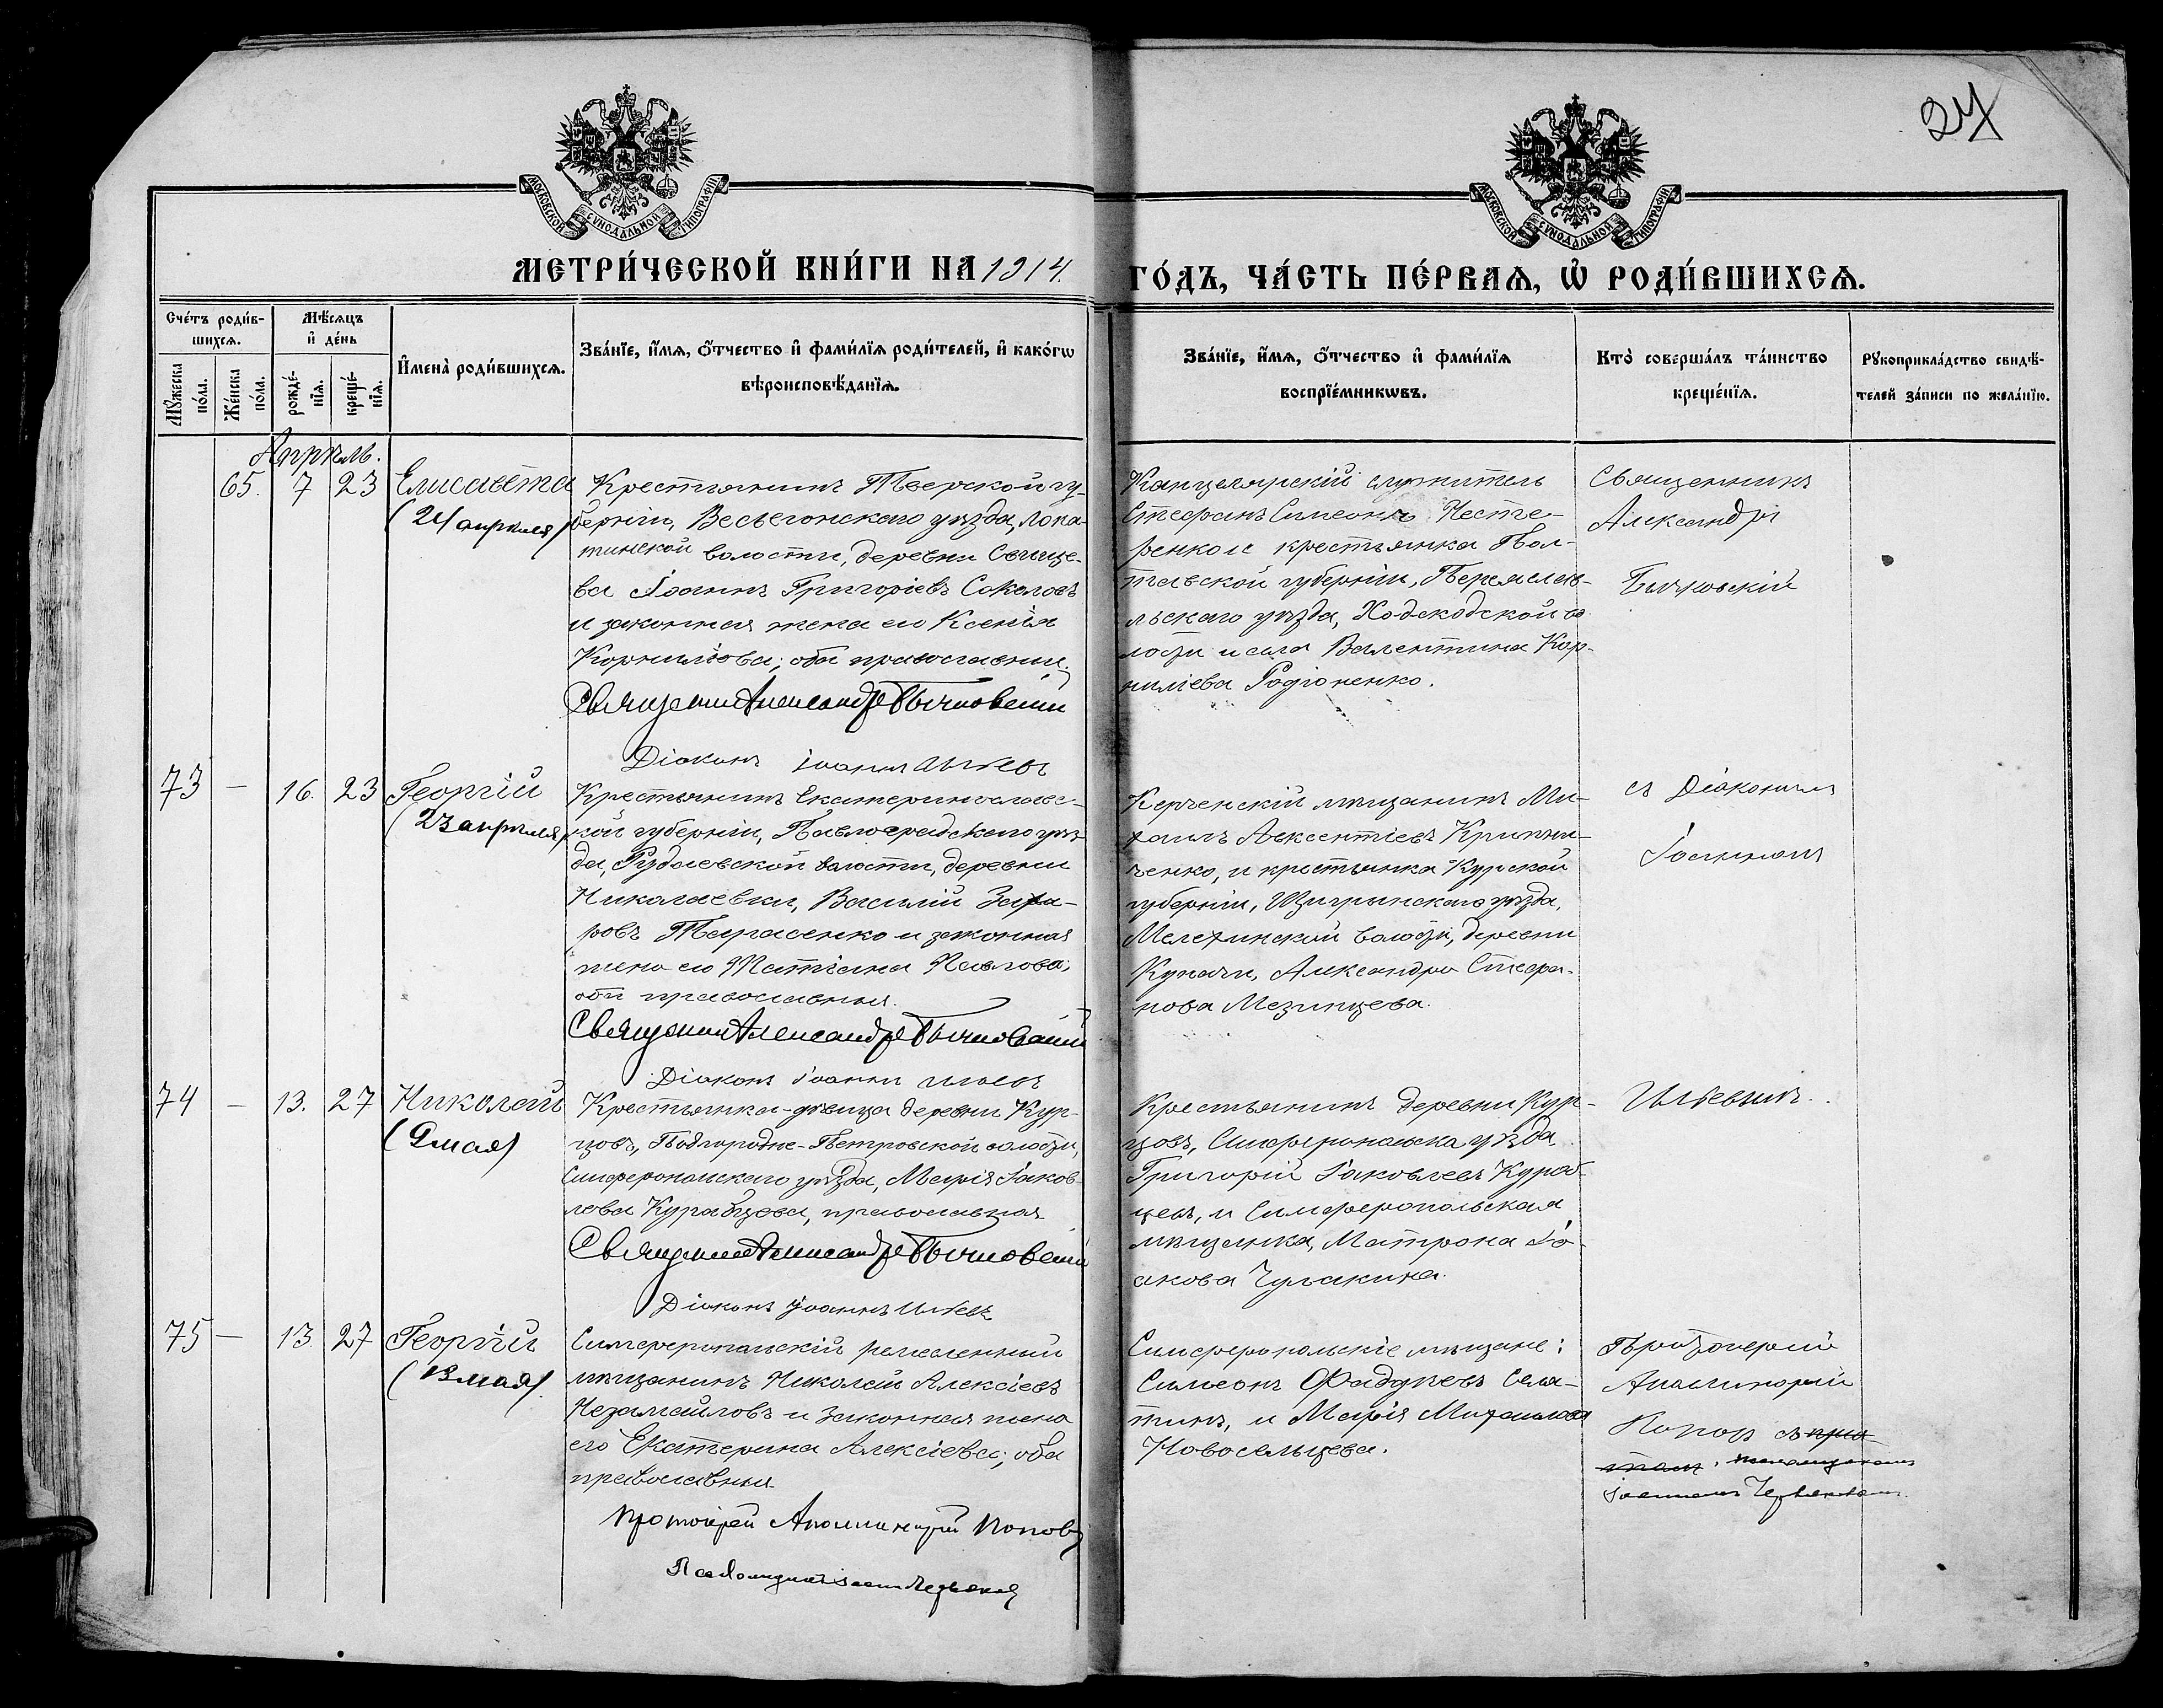 24
МОСКОВСКОЙ СѴНОДАЛЬНОЙ ТИПОГРАФІИ
МОСКОВСКОЙ СѴНОДАЛЬНОЙ ТИПОГРАФІИ
МЕТРИ́ЧЕСКОЙ КНИ́ГИ НА 1914. ГО́ДЪ, ЧА́СТЬ ПЕ́РВАѦ, Ѡ҆ РОДИ́ВШИХСѦ.
Сче́тъ роди́в-
шихсѧ.
Мꙋ́жеска по́ла.
Же́нска по́ла.
Мѣ́сѧцъ
и҆ де́нь
рожде́-
нїѧ.
креще́-
нїѧ.
И҆мена̀ роди́вшихсѧ.
Зва́нїе, и҆́мѧ, ѻ҆́тчество и҆ фами́лїѧ роди́телей, и҆ како́гѡ
вѣроисповѣ́данїѧ.
Зва́нїе, и҆́мѧ, ѻ҆́тчество и҆ фами́лїѧ
воспрїе́мникѡвъ.
Кто̀ соверша́лъ та́инство
креще́нїѧ.
Рꙋкоприкла́дство свидѣ́-
телей за́писи по жела́нїю.
Апрѣль.
65. 7 23 Елисавета
(24 апрѣля)
Крестьянинъ Тверской гу-
берніи, Весьегонскаго уѣзда, Лопа-
тинской волости, деревни Свище-
ва Іоаннъ Григоріевъ Соколовъ
и законная жена его Ксенія
Корнилова; оба православные.
Священникъ Александръ Бычковскій
Діаконъ Іоаннъ Ильевъ
Канцелярскій служитель
Стефанъ Симеоновъ Несте-
ренко и крестьянка Пол-
тавской губерніи, Переяслав-
льскаго уѣзда, Ходскодской во-
лости и села Валентина Кор-
ниліева Родіоненко.
Священникъ
Александръ
Бычковскій
73 — 16. 23 Георгій
(23 апрѣля)
Крестьянинъ Екатеринославс-
кой губерніи, Павлоградскаго уѣз-
да, волости, деревни
Николаевки, Василій Заха-
ровъ Тарасенко и законная
жена его Татіана Павлова;
оба православные.
Священникъ Александръ Бычковскій
Діаконъ Іоаннъ Ильевъ
Керченскій мѣщанинъ Ми-
хаилъ Авксентіевъ Крини-
ченко, и крестьянка Курской
губерніи, Щигринскаго уѣзда,
Мелехинской волости, деревни
Александра Стефа-
нова Мезинцева.
съ Діакономъ
Іоанномъ
74 — 13. 27 Николай
(9 мая)
Крестьянка-дѣвица деревни Кур-
цовъ, Подгородне-Петровской волости,
Симферопольскаго уѣзда, Марія Іаков-
лева Курабцева, православная
Священникъ Александръ Бычковскій
Діаконъ Іоаннъ Ильевъ
Крестьянинъ деревни Кур-
цовъ, Симферопольска уѣзда
Григорій Іаковлевъ Кураб-
цевъ, и Симферопольская
мѣщанка, Матрона Іо-
акова Чулакина.
Ильевымъ.
75 — 13. 27 Георгій
(13 мая)
Симферопольскій ремесленный
мѣщанинъ Николай Алексіевъ
Незамайловъ и законная жена
его Екатерина Алексіева; оба
православные.
Протоіерей Аполлинарій Поповъ
Псаломщикъ Іоаннъ
Симферопольскіе мѣщане:
Симеонъ Фаддѣевъ Сала-
тинъ, и Марія Михаилова
Новосельцева.
Протоіерей
Аполлинарій
Попов съ при-
томъ. псаломщикомъ
Іоанномъ